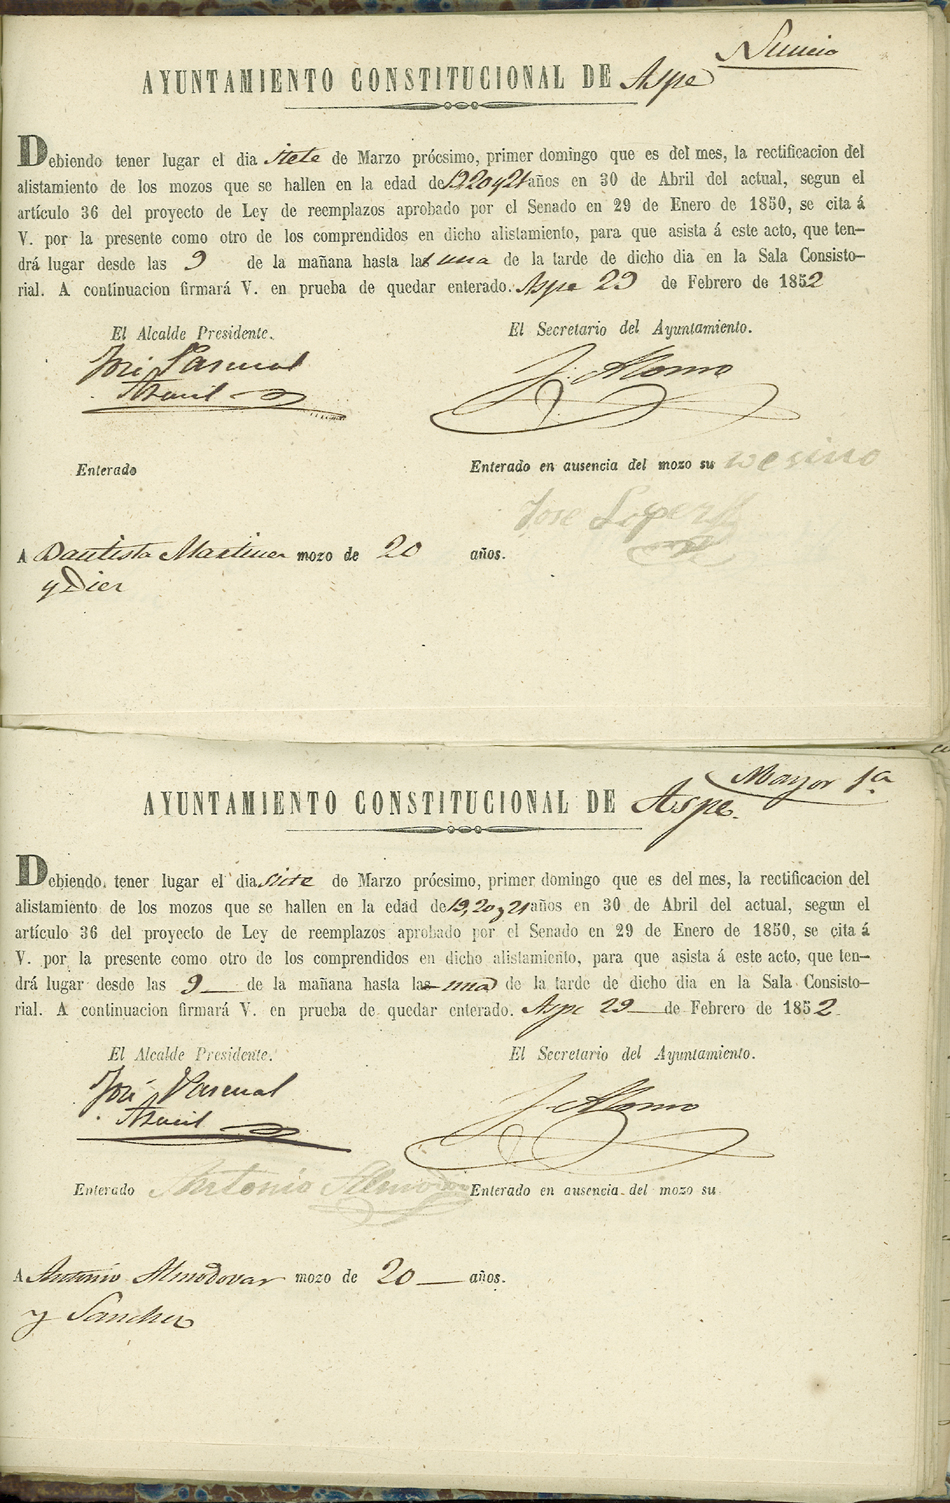 Nuncio
AYUNTAMIENTO CONSTITUCIONAL DE Aspe
Debiendo tener lugar el dia siete de Marzo prócsimo, primer domingo que es del mes, la rectificacion del
alistamiento de los mozos que se hallen en la edad de 19 20 y 21 años en 30 de Abril del actual, segun el
artículo 36 del proyecto de Ley de reemplazos aprobado por el Senado en 29 de Enero de 1850, se cita á
V. por la presente como otro de los comprendidos en dicho alistamiento, para que asista á este acto, que ten—
drá lugar desde las 9 de la mañana hasta la una de la tarde de dicho dia en la Sala Consisto—
rial. A continuacion firmará V. en prueba de quedar enterado. Aspe 29 de Febrero de 1852
El Alcalde Presidente. El Secretario del Ayuntamiento.
José Pascual J. Alonso
Enterado Enterado en ausencia del mozo su vesino
Jose Lopez
A Bautista Martinez mozo de 20 años.
y Diez
Mayor 1a
AYUNTAMIENTO CONSTITUCIONAL DE Aspe.
Debiendo tener lugar el dia siete de Marzo prócsimo, primer domingo que es del mes, la rectificacion del
alistamiento de los mozos que se hallen en la edad de 19, 20 y 21 años en 30 de Abril del actual, segun el
artículo 36 del proyecto de Ley de reemplazos aprobado por el Senado en 29 de Enero de 1850, se cita á
V. por la presente como otro de los comprendidos en dicho alistamiento, para que asista á este acto, que ten—
drá lugar desde las 9 de la mañana hasta la una de la tarde de dicho dia en la Sala Consisto—
rial. A continuacion firmará V. en prueba de quedar enterado. Aspe 29 de Febrero de 1852
El Alcalde Presidente. El Secretario del Ayuntamiento.
José Pascual J. Alonso
Enterado Antonio Almodovar Enterado en ausencia del mozo su
A Antonio Almodovar mozo de 20 años.
y Sanchez